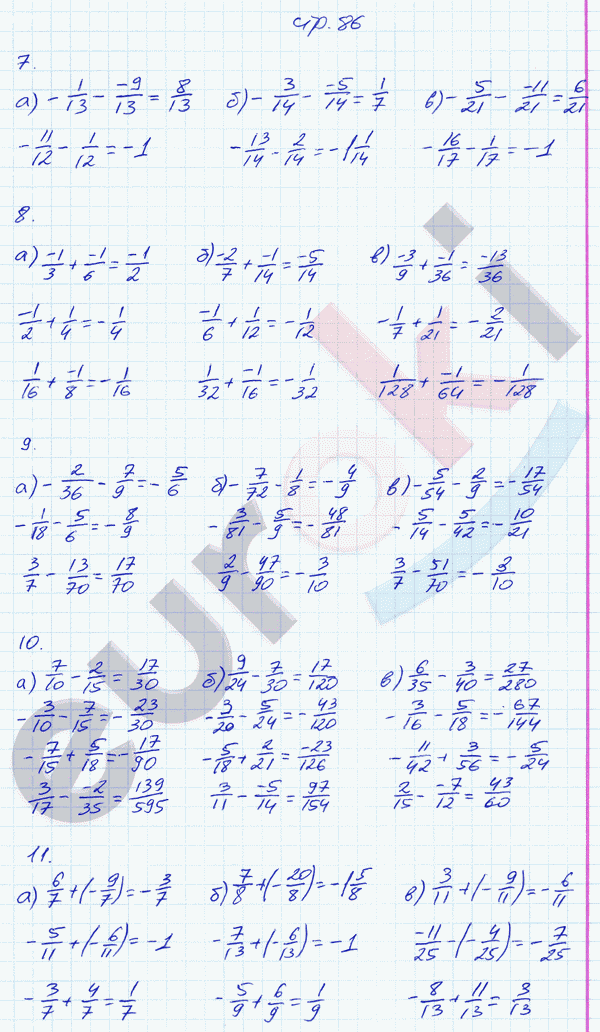 стр. 86
7.
а) -1/13 - -9/13 = 8/13 б) -3/14 - -5/14 = 1/7 в) -5/21 - -11/21 = 6/21
-11/12 - 1/12 = -1 -13/14 - 2/14 = -1 1/14 -16/17 - 1/17 = -1
8.
а) -1/3 + -1/6 = -1/2 б) -2/7 + -1/14 = -5/14 в) -3/9 + -1/36 = -13/36
-1/2 + 1/4 = -1/4 -1/6 + 1/12 = -1/12 -1/7 + 1/21 = -2/21
1/16 + -1/8 = -1/16 1/32 + -1/16 = -1/32 1/128 + -1/64 = -1/128
9.
а) -2/36 - 7/9 = -5/6 б) -7/72 - 1/8 = -4/9 в) -5/54 - 2/9 = -17/54
-1/18 - 5/6 = -8/9 -3/81 - 5/9 = -48/81 -5/14 - 5/42 = -10/21
3/7 - 13/70 = 17/70 2/9 - 47/90 = -3/10 3/7 - 51/70 = -3/10
10.
а) 7/10 - 2/15 = 17/30 б) 9/24 - 7/30 = 17/120 в) 6/35 - 3/40 = 27/280
-3/10 - 7/15 = -23/30 -3/20 - 5/24 = -43/120 -3/16 - 5/18 = -67/144
-7/15 + 5/18 = -17/90 -5/18 + 2/21 = -23/126 -11/42 + 3/56 = -5/24
3/17 - -2/35 = 139/595 3/11 - -5/14 = 97/154 2/15 - -7/12 = 43/60
11.
а) 6/7 + (-9/7) = -3/7 б) 7/8 + (-20/8) = -1 5/8 в) 3/11 + (-9/11) = -6/11
-5/11 + (-6/11) = -1 -7/13 + (-6/13) = -1 -11/25 - (-4/25) = -7/25
-3/7 + 4/7 = 1/7 -5/9 + 6/9 = 1/9 -8/13 + 11/13 = 3/13
euroki